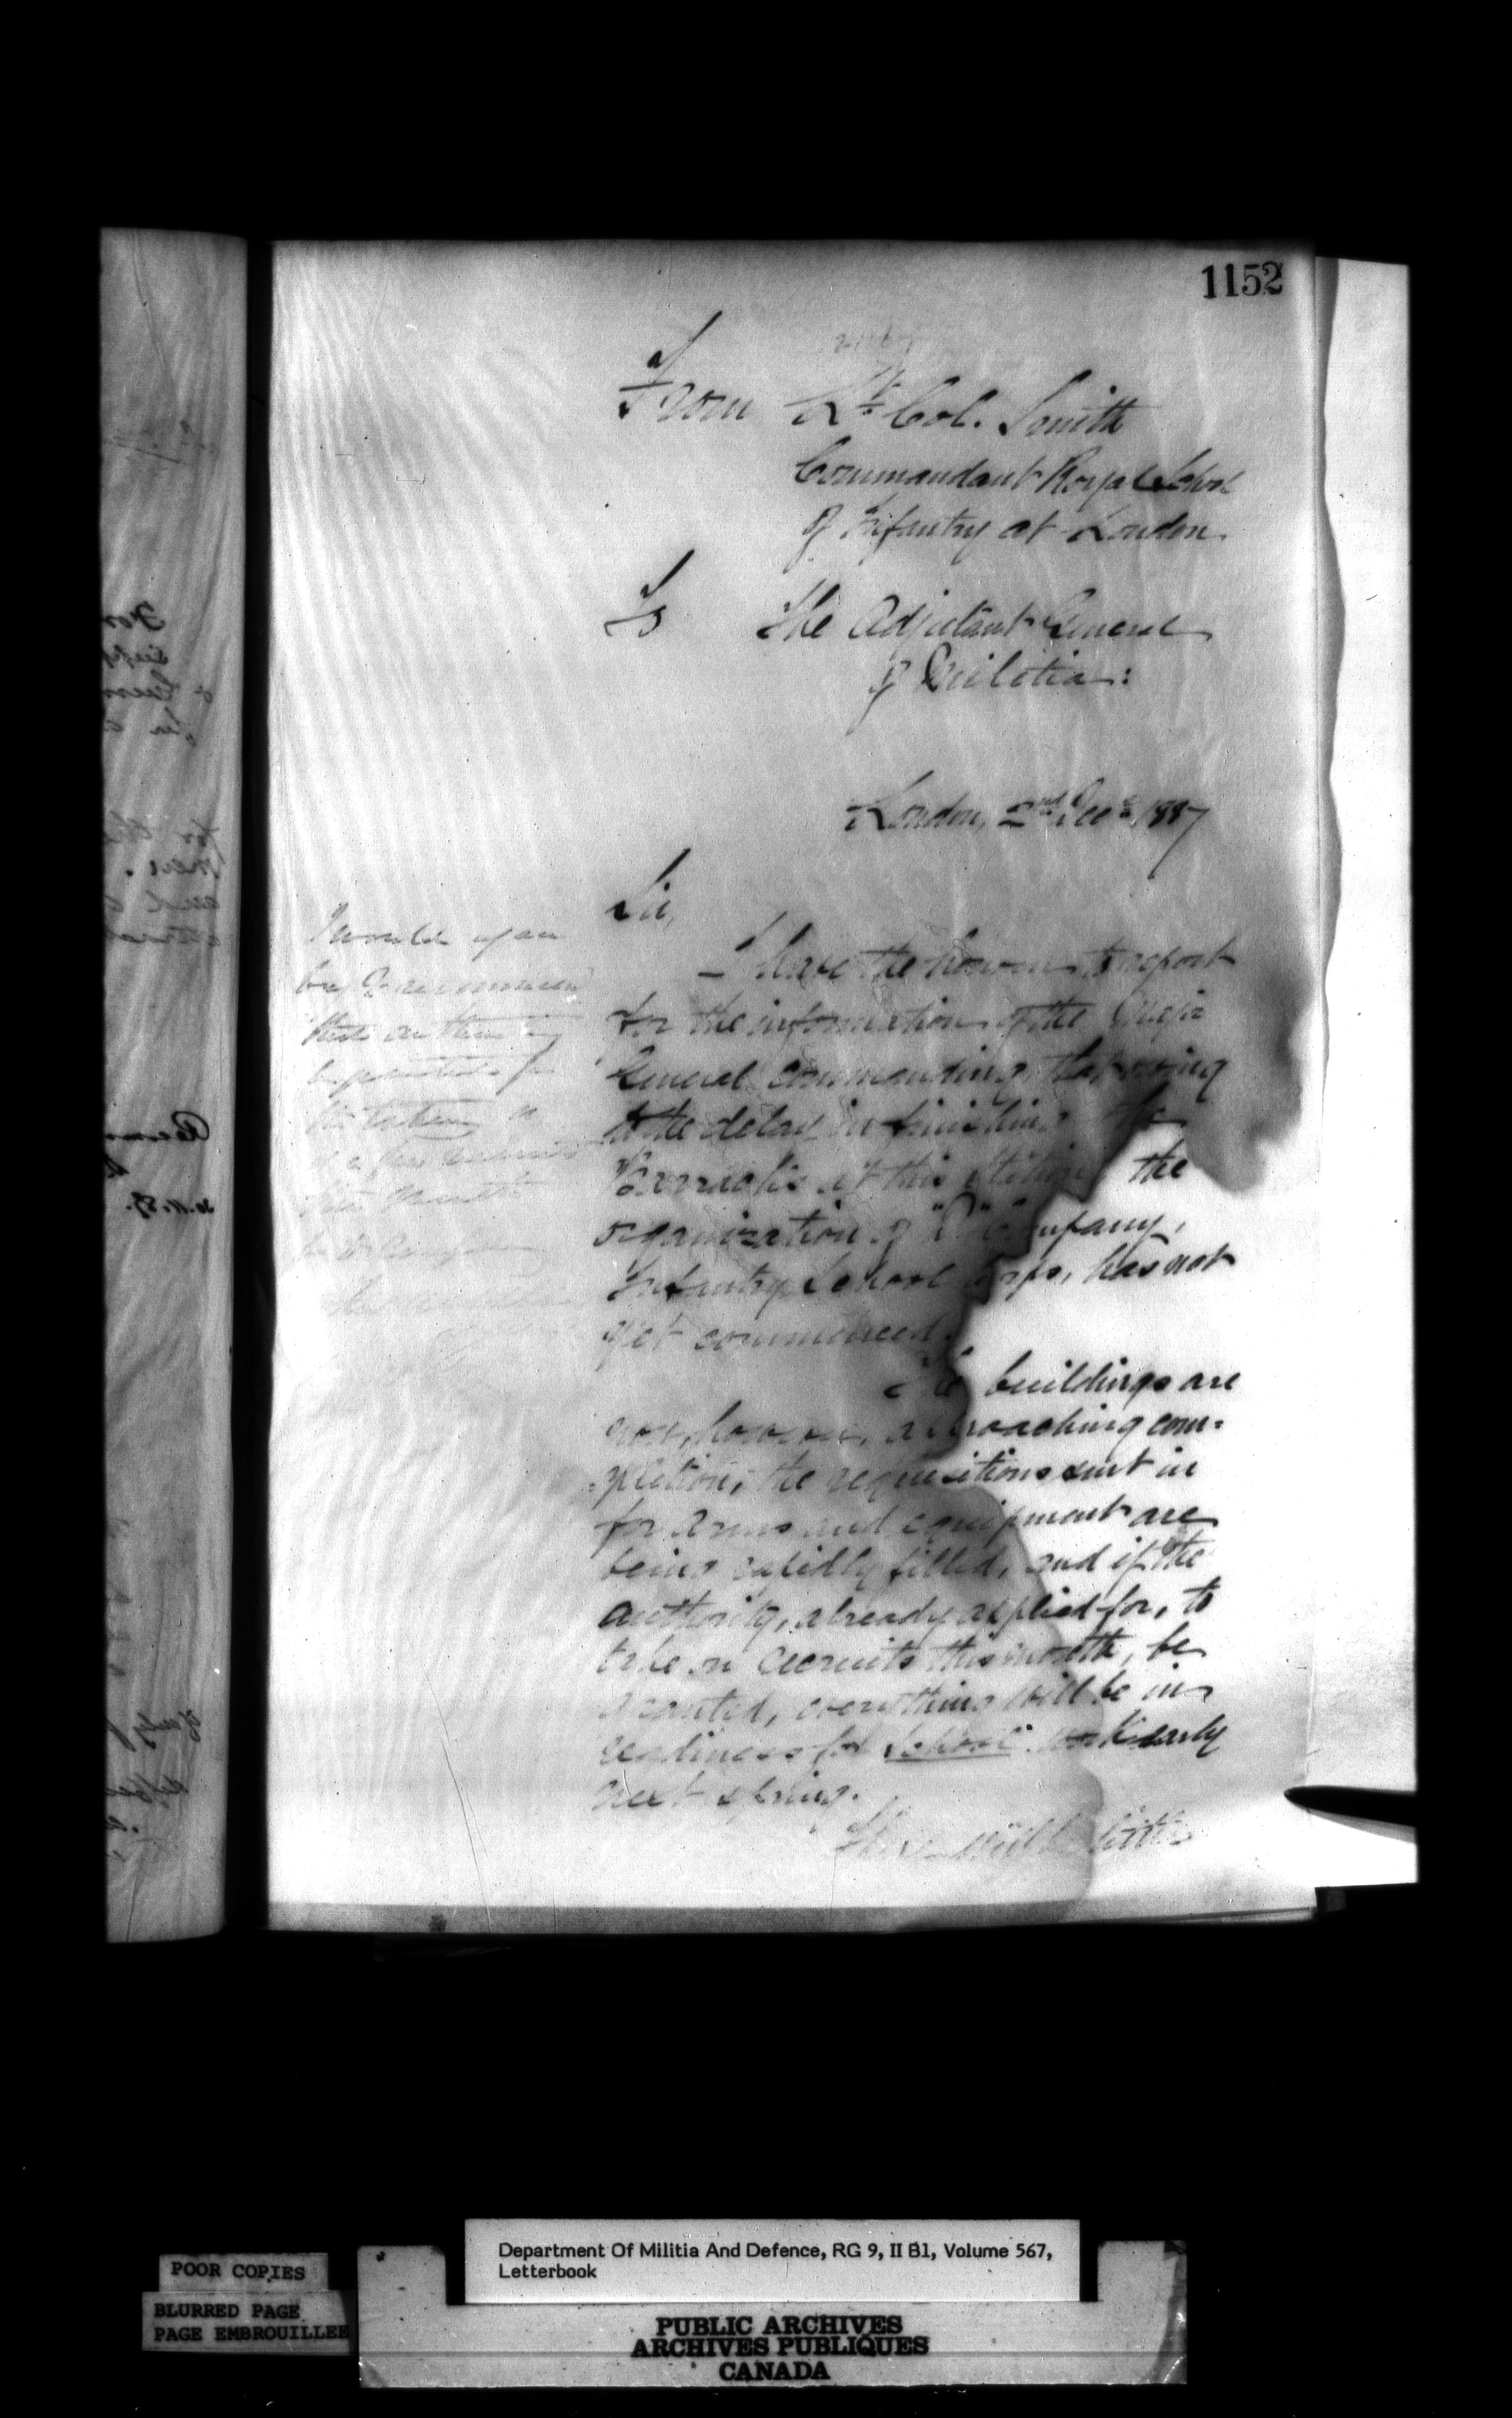 1152
From Lt. Col. Smith
Commandant Royal School
of Infantry at London
To The Adjutant General
of Militia:
London, 2nd Decr. 1887
Sir,
I have the honour to report
for the information of the Major
General Commanding, that owing
to the delay in finishing the
Barracks at this Station, the
organization of "D" Company,
Infantry School Corps, has not
yet commenced.
The buildings are
now, however, approaching com-
pletion, the requisitions sent in
for Arms and equipment are
being rapidly filled, and if the
authority, already applied for, to
take on recruits this month, be
granted, everything will be in
readiness for School work early
next spring.
There will
I would again
beg to recommend
that authority
be granted for
the taking on
of a few recruits
this month
Department Of Militia And Defence, RG 9, II B1, Volume 567,
Letterbook
POOR COPIES
BLURRED PAGE
PAGE EMBROUILLEE
PUBLIC ARCHIVES
ARCHIVES PUBLIQUES
CANADA